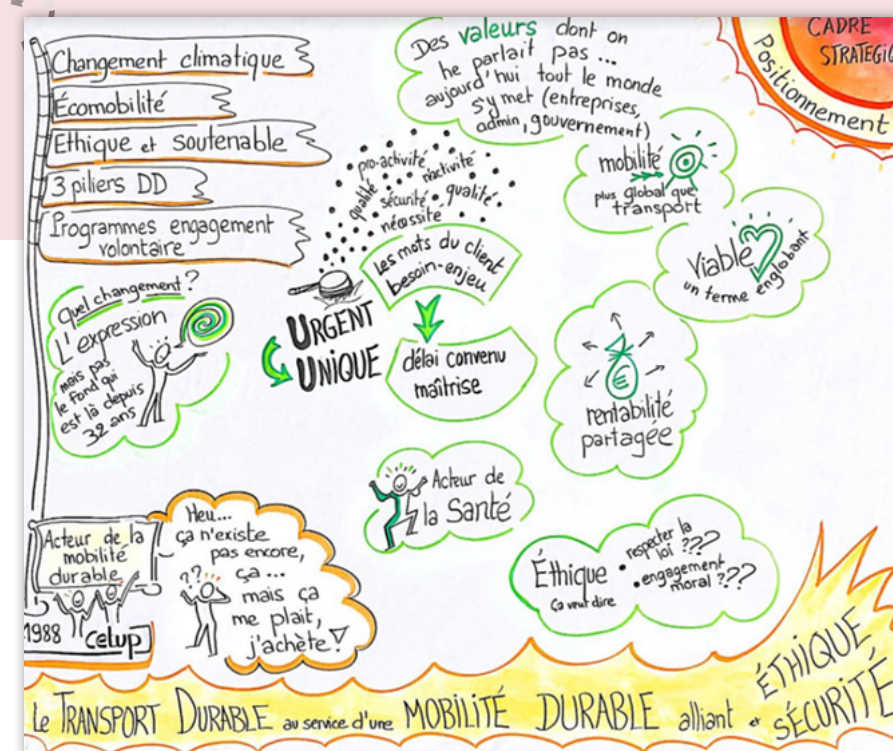 Changement climatique
Écomobilité
Ethique et Soutenable
3 piliers DD
Programmes engagement
volontaire
Quel changement ?
L'expression
mais pas
le fond qui
est là depuis
32 ans
Acteur de la
mobilité
durable
1988
Celup
Heu...
ça n'existe
pas encore,
ça ...
mais ça
me plait,
j'achète !
??
Des valeurs dont on
ne parlait pas ...
aujourd'hui tout le monde
s'y met (entreprises,
admin, gouvernement)
pro-activité
réactivité
qualité
sécurité
qualité
nécessite
les mots du client
besoin-enjeu
URGENT
UNIQUE
délai convenu
maîtrise
Acteur de
la Santé
mobilité
plus global que
transport
Viable
un terme englobant
€
rentabilité
partagée
Éthique
ça veut dire
• respecter la
loi ???
• engagement
moral ???
CADRE
STRATÉGIQ
Positionnement
Le TRANSPORT DURABLE au service d'une MOBILITÉ DURABLE alliant ÉTHIQUE et SÉCURITÉ